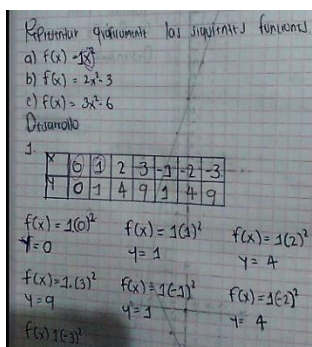 Representar graficamente las siguientes funciones
a) f(x) = 1x²
b) f(x) = 2x² - 3
c) f(x) = 3x² - 6
Desarrollo
1.
X 0 1 2 3 -1 -2 -3
Y 0 1 4 9 1 4 9
f(x) = 1(0)² f(x) = 1(1)² f(x) = 1(2)²
y = 0 y = 1 y = 4
f(x) = 1.(3)² f(x) = 1(-1)² f(x) = 1(-2)²
y = 9 y = 1 y = 4
f(x) 1(-3)²